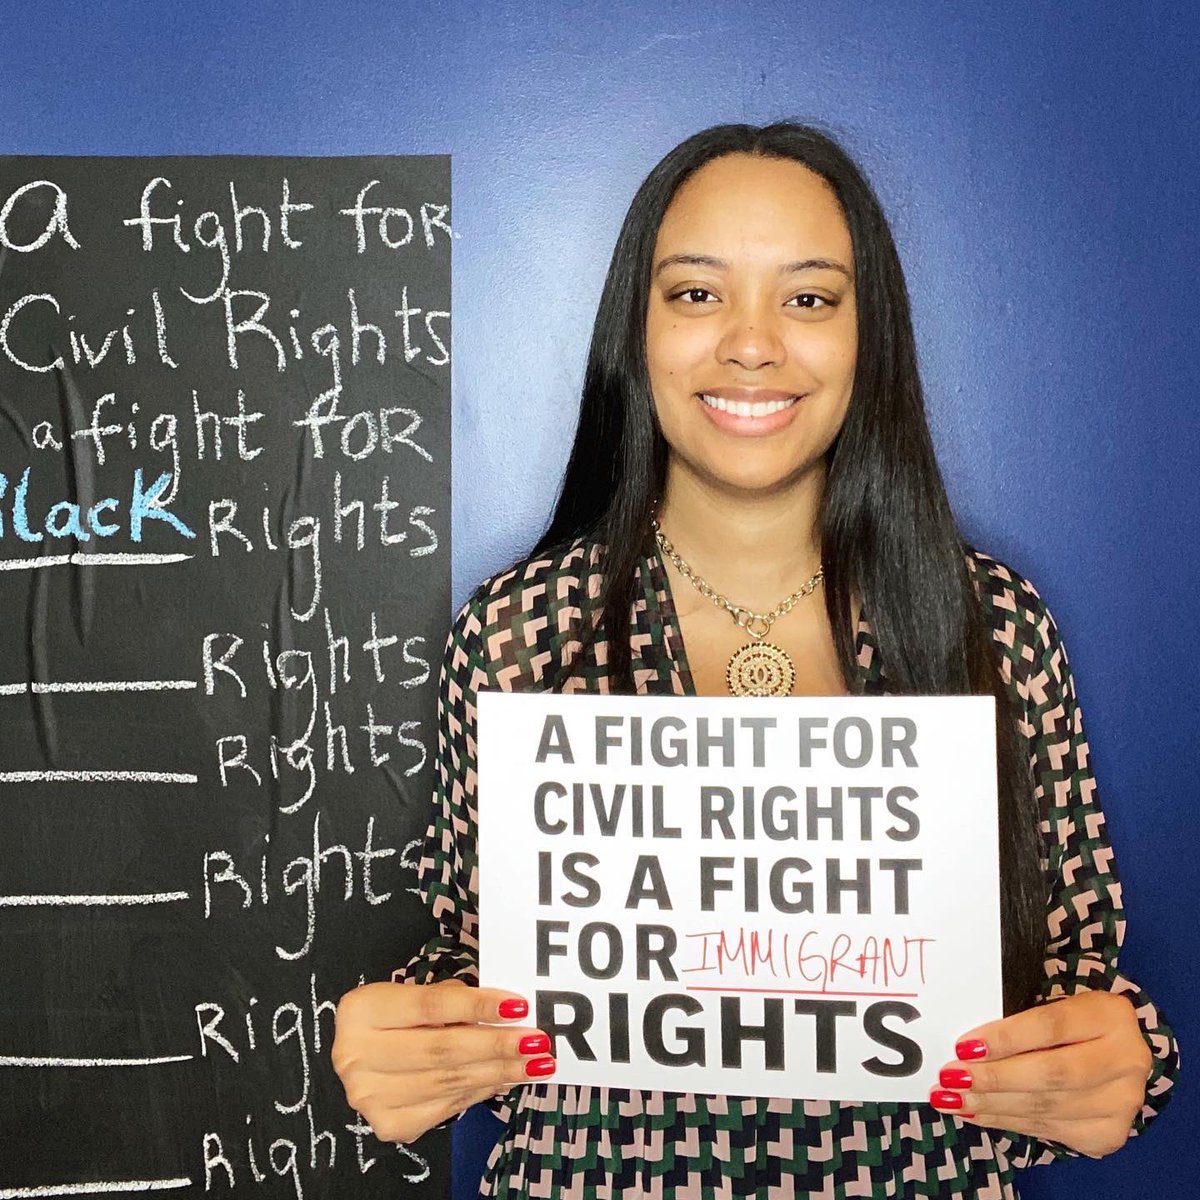 a fight for
Civil Rights
a fight for
Black Rights
Rights
Rights
Rights
Rights
Rights
A FIGHT FOR
CIVIL RIGHTS
IS A FIGHT
FOR IMMIGRANT
RIGHTS